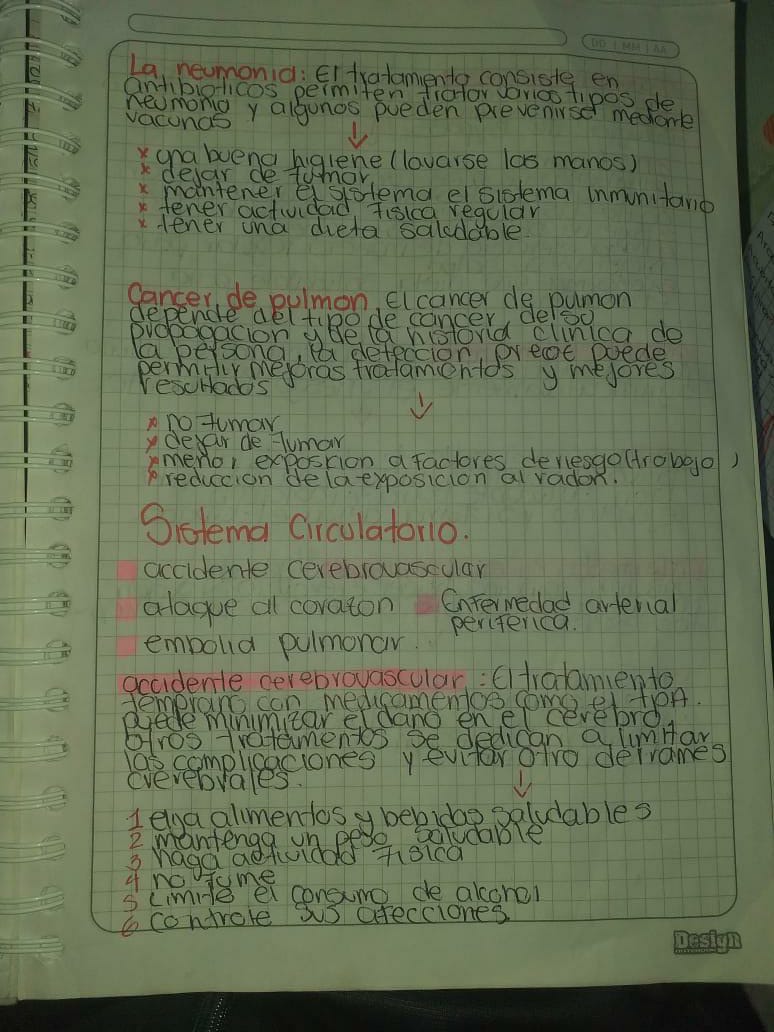 DD | MM | AA
La neumonia: El tratamiento consiste en
antibioticos permiten tratar varios tipos de
neumonia y algunos pueden prevenirse mediante
vacunas
x una buena higiene (lavarse las manos)
x dejar de fumar
x mantener el sistema el sistema inmunitario
x tener actividad fisica regular
x tener una dieta saludable.
Cancer de pulmon El cancer de pumon
depende del tipo de cancer, de su
propagacion y de la historia clinica de
la persona, la deteccion precoz puede
permitir mejoras tratamientos y mejores
resultados
x no fumar
x dejar de fumar
x menor exposicion a factores de riesgo (trabajo)
x reduccion de la exposicion al radon.
Sistema Circulatorio.
accidente cerebrovascular
ataque al corazon Enfermedad arterial
periferica.
embolia pulmonar.
accidente cerebrovascular: El tratamiento
temprano con medicamentos como el tpA.
puede minimizar el daño en el cerebro.
Otros tratamientos se dedican a limitar
las complicaciones y evitar otro derrames
cverebrales.
1 elija alimentos y bebidas saludables
2 mantenga un peso saludable
3 haga actividad fisica
4 no fume
5 Limite el consumo de alcohol
6 controle sus afecciones.
Design